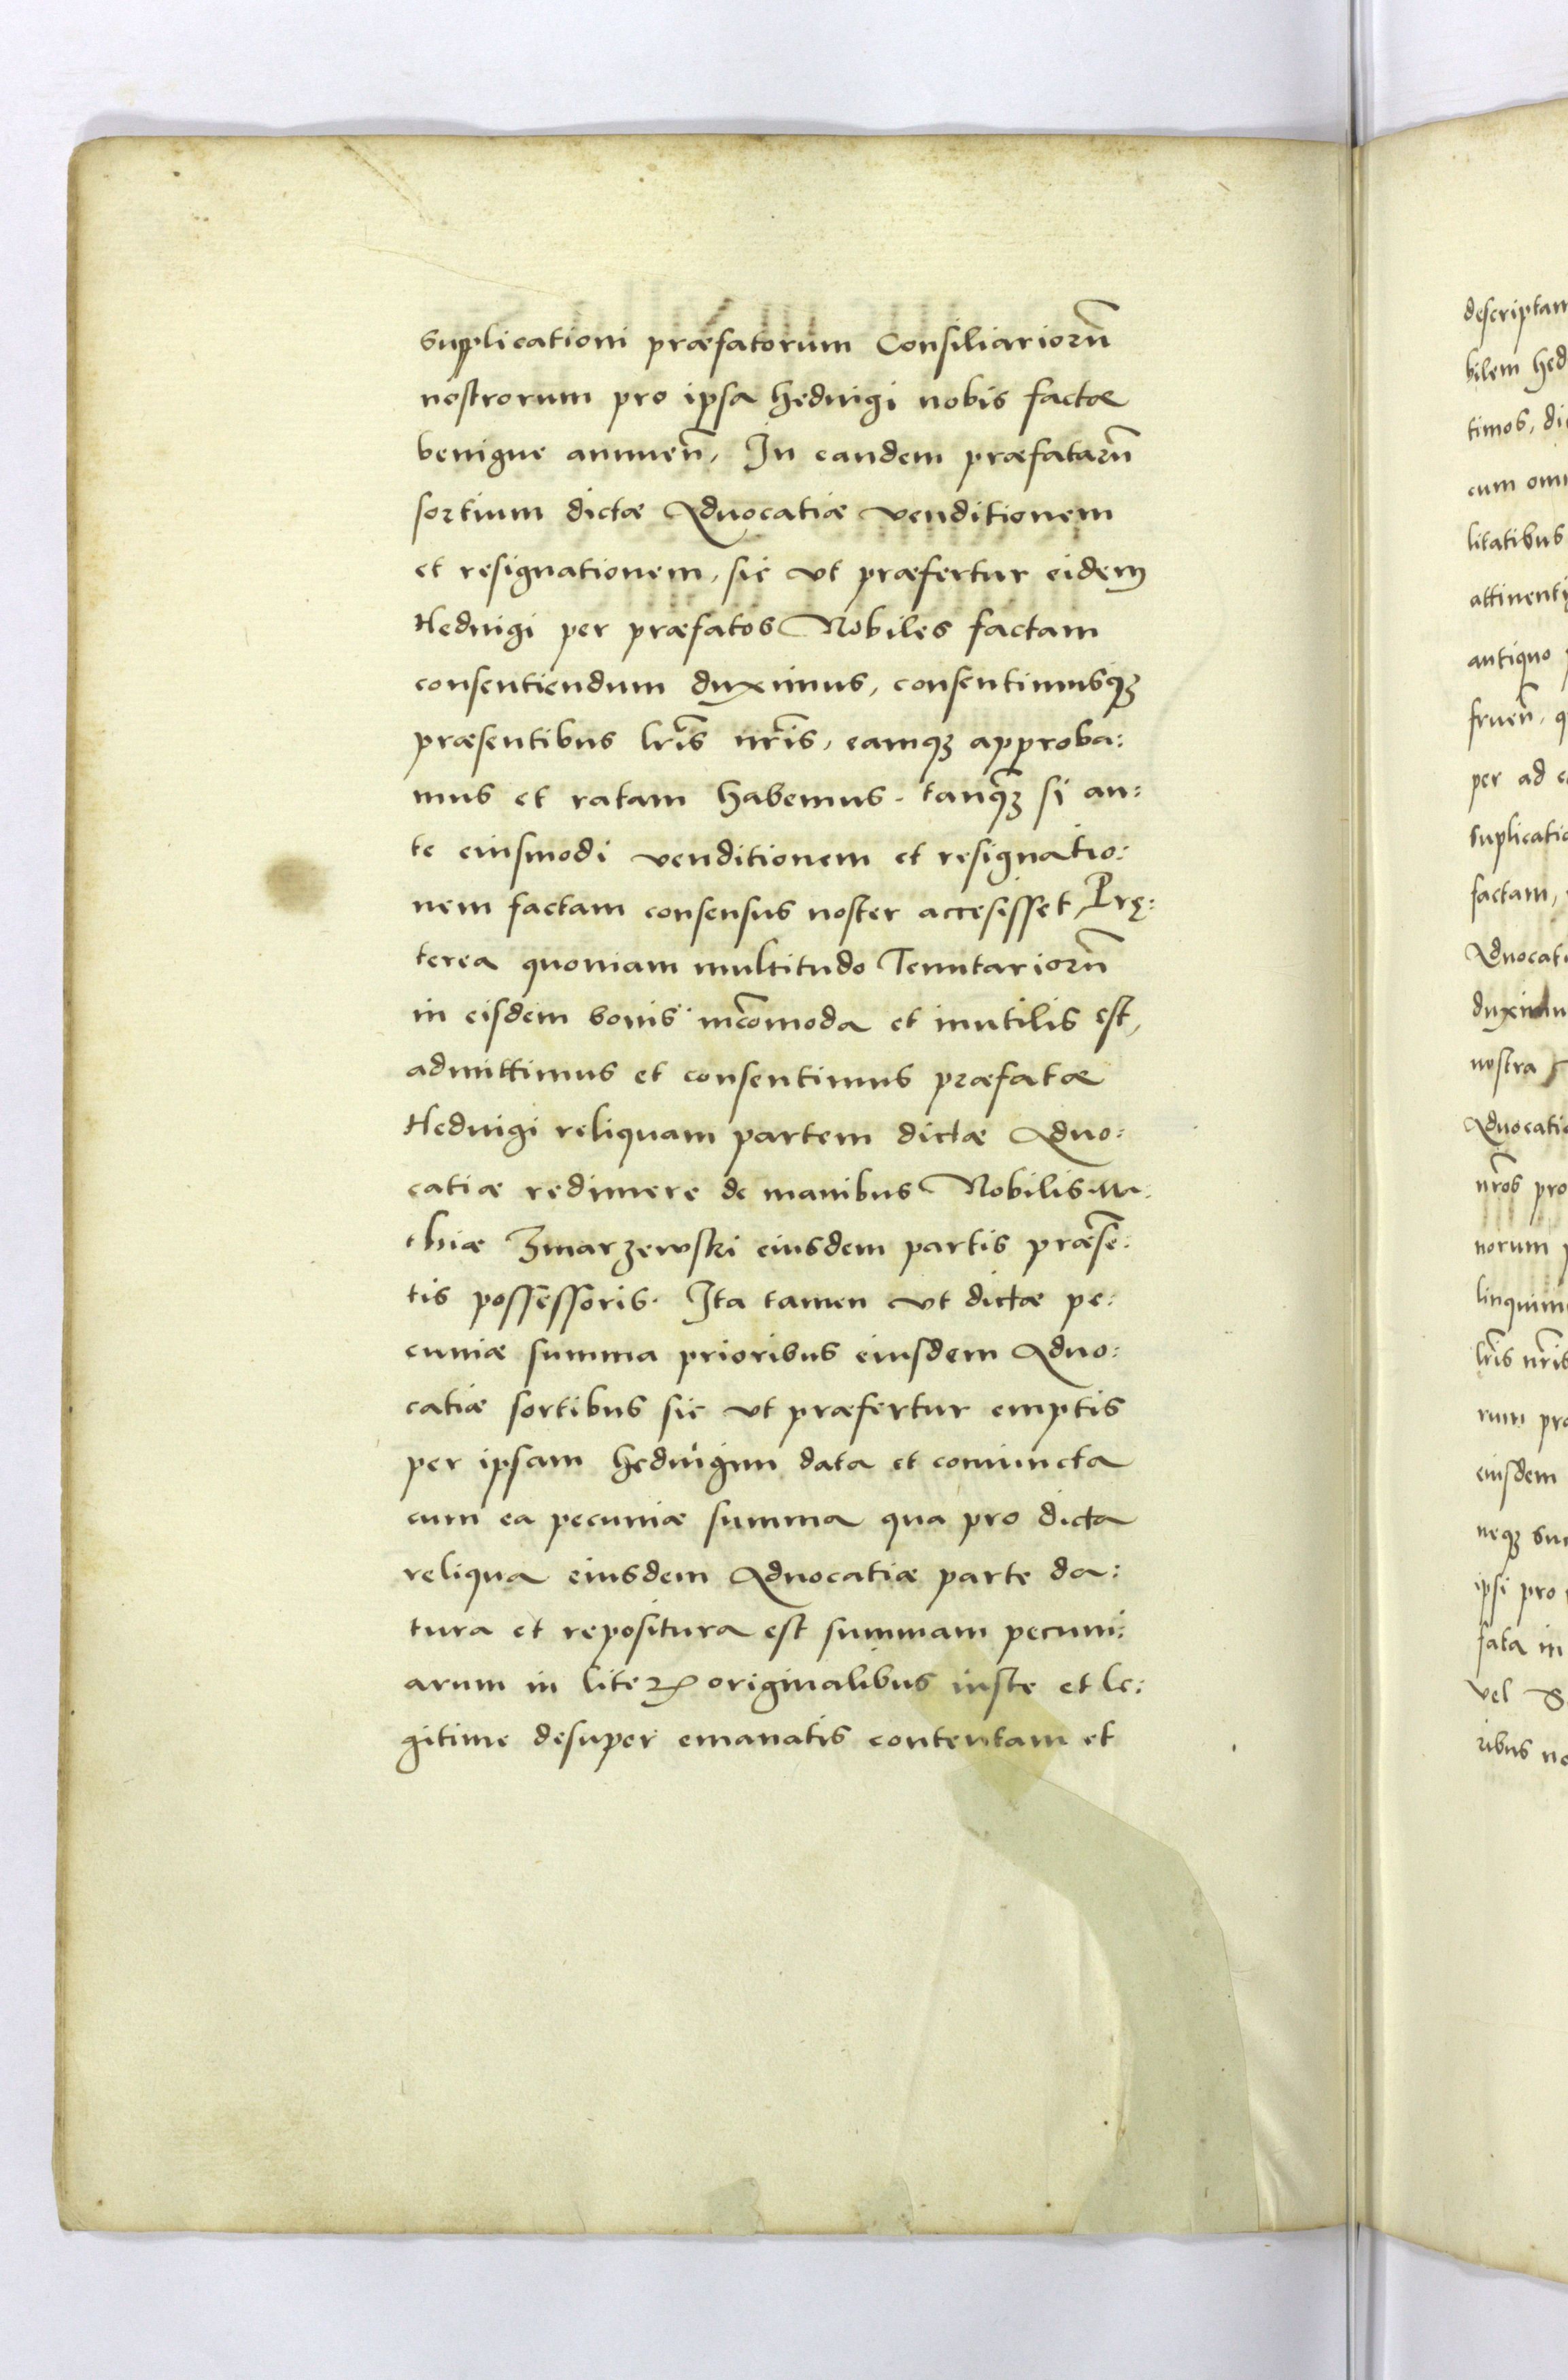 supplicationi præfatorum Consiliarioru̅
nostrorum pro ipsa Hedvigi nobis factæ
benigne annuen̅, In eandem præfataru̅
sortium dictæ Advocatiæ venditionem
et resignationem, sic vt præfertur eidem
Hedvigi per præfatos Nobiles factam
consentiendum duximus, consentimusqꝫ
præsentibus lr̅is nr̅is, eamqꝫ approba:
mus et ratam habemus. tanqꝫ si an:
te eiusmodi venditionem et resignatio:
nem factam consensus noster accesisset, Prę:
terea quoniam multitudo Tenutarioru̅
in eisdem bonis inco̅moda et inutilis est,
admittimus et consentimus præfatæ
Hedvigi reliquam partem dictæ Advo:
catiæ redimere de manibus Nobilis Ma:
thiæ Zmarzewski eiusdem partis præse̅:
tis possessoris. Ita tamen vt dictæ pe:
cuniæ summa prioribus eiusdem Advo:
catiæ sortibus sic vt præfertur emptis
per ipsam Hedvigim data et coniuncta
cum ea pecuniæ summa qua pro dicta
reliqua eiusdem Advocatiæ parte da:
tura et repositura est summam pecuni:
arum in literꝭ originalibus iuste et le:
gitime desuper emanatis contentam et
descriptam
timos,
litatibus
antiquo
fruen̅,
per ad
factam,
nostra
nr̅os pro
norum
lr̅is nr̅is
eiusdem
neqꝫ
ipsi pro
fata in
vel
ribus